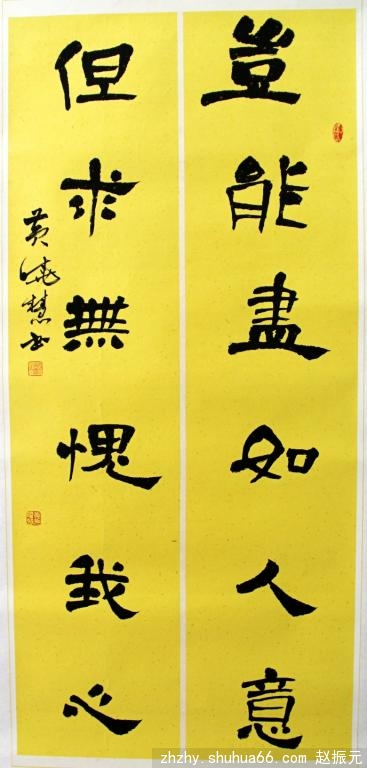 豈能盡如人意
但求無愧我心
黄曉慧书
zhzhy.shuhua66.com 赵振元